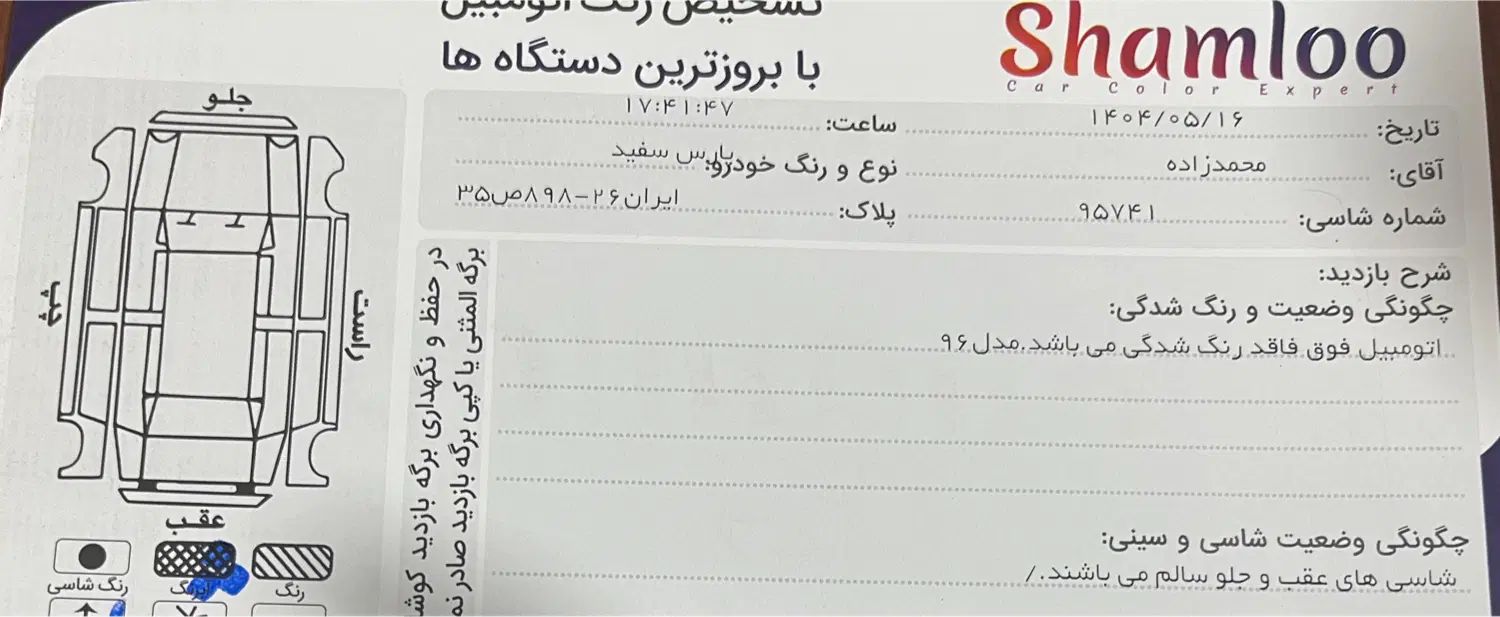 تشخیص رنگ اتومبیل
با بروزترین دستگاه ها
Shamloo
Car Color Expert
تاریخ: ۱۴۰۴/۰۵/۱۶ ساعت: ۱۷:۴۱:۴۷
آقای: محمدزاده نوع و رنگ خودرو: پارس سفید
شماره شاسی: ۹۵۷۴۱ پلاک: ایران۲۶-۸۹۸ص۳۵
شرح بازدید:
چگونگی وضعیت و رنگ شدگی:
اتومبیل فوق فاقد رنگ شدگی می باشد.مدل۹۶
چگونگی وضعیت شاسی و سینی:
شاسی های عقب و جلو سالم می باشند./
در حفظ و نگهداری برگه بازدید
برگه المثنی یا کپی برگه بازدید صادر
جلو
راست
چپ
عقب
رنگ
آبرنگ
رنگ شاسی